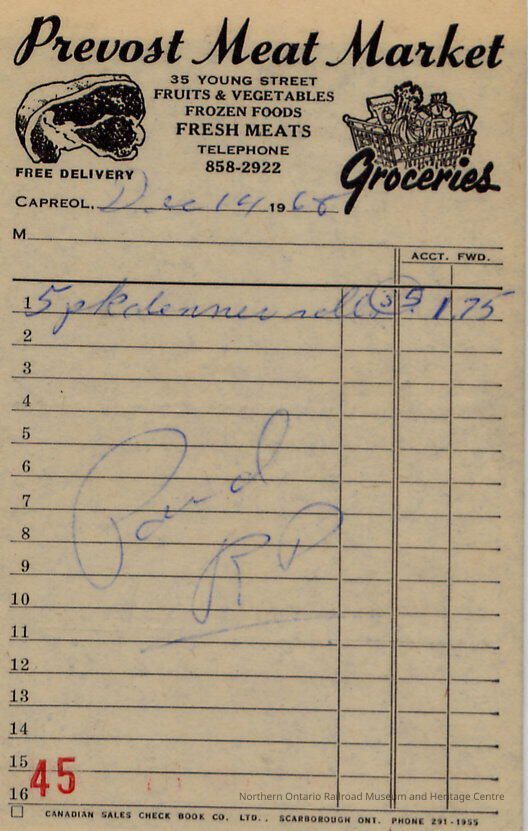 Prevost Meat Market
35 YOUNG STREET
FRUITS & VEGETABLES
FROZEN FOODS
FRESH MEATS
TELEPHONE
858-2922
FREE DELIVERY
Groceries
CAPREOL, Dec 14 1968
M
ACCT. FWD.
1 5 pk denner rolls 35 1.75
2
3
4
5
6
7
8
9
10
11
12
13
14
15
16
Paid
RP
45
Northern Ontario Railroad Museum and Heritage Centre
CANADIAN SALES CHECK BOOK CO. LTD., SCARBOROUGH ONT. PHONE 291-1955